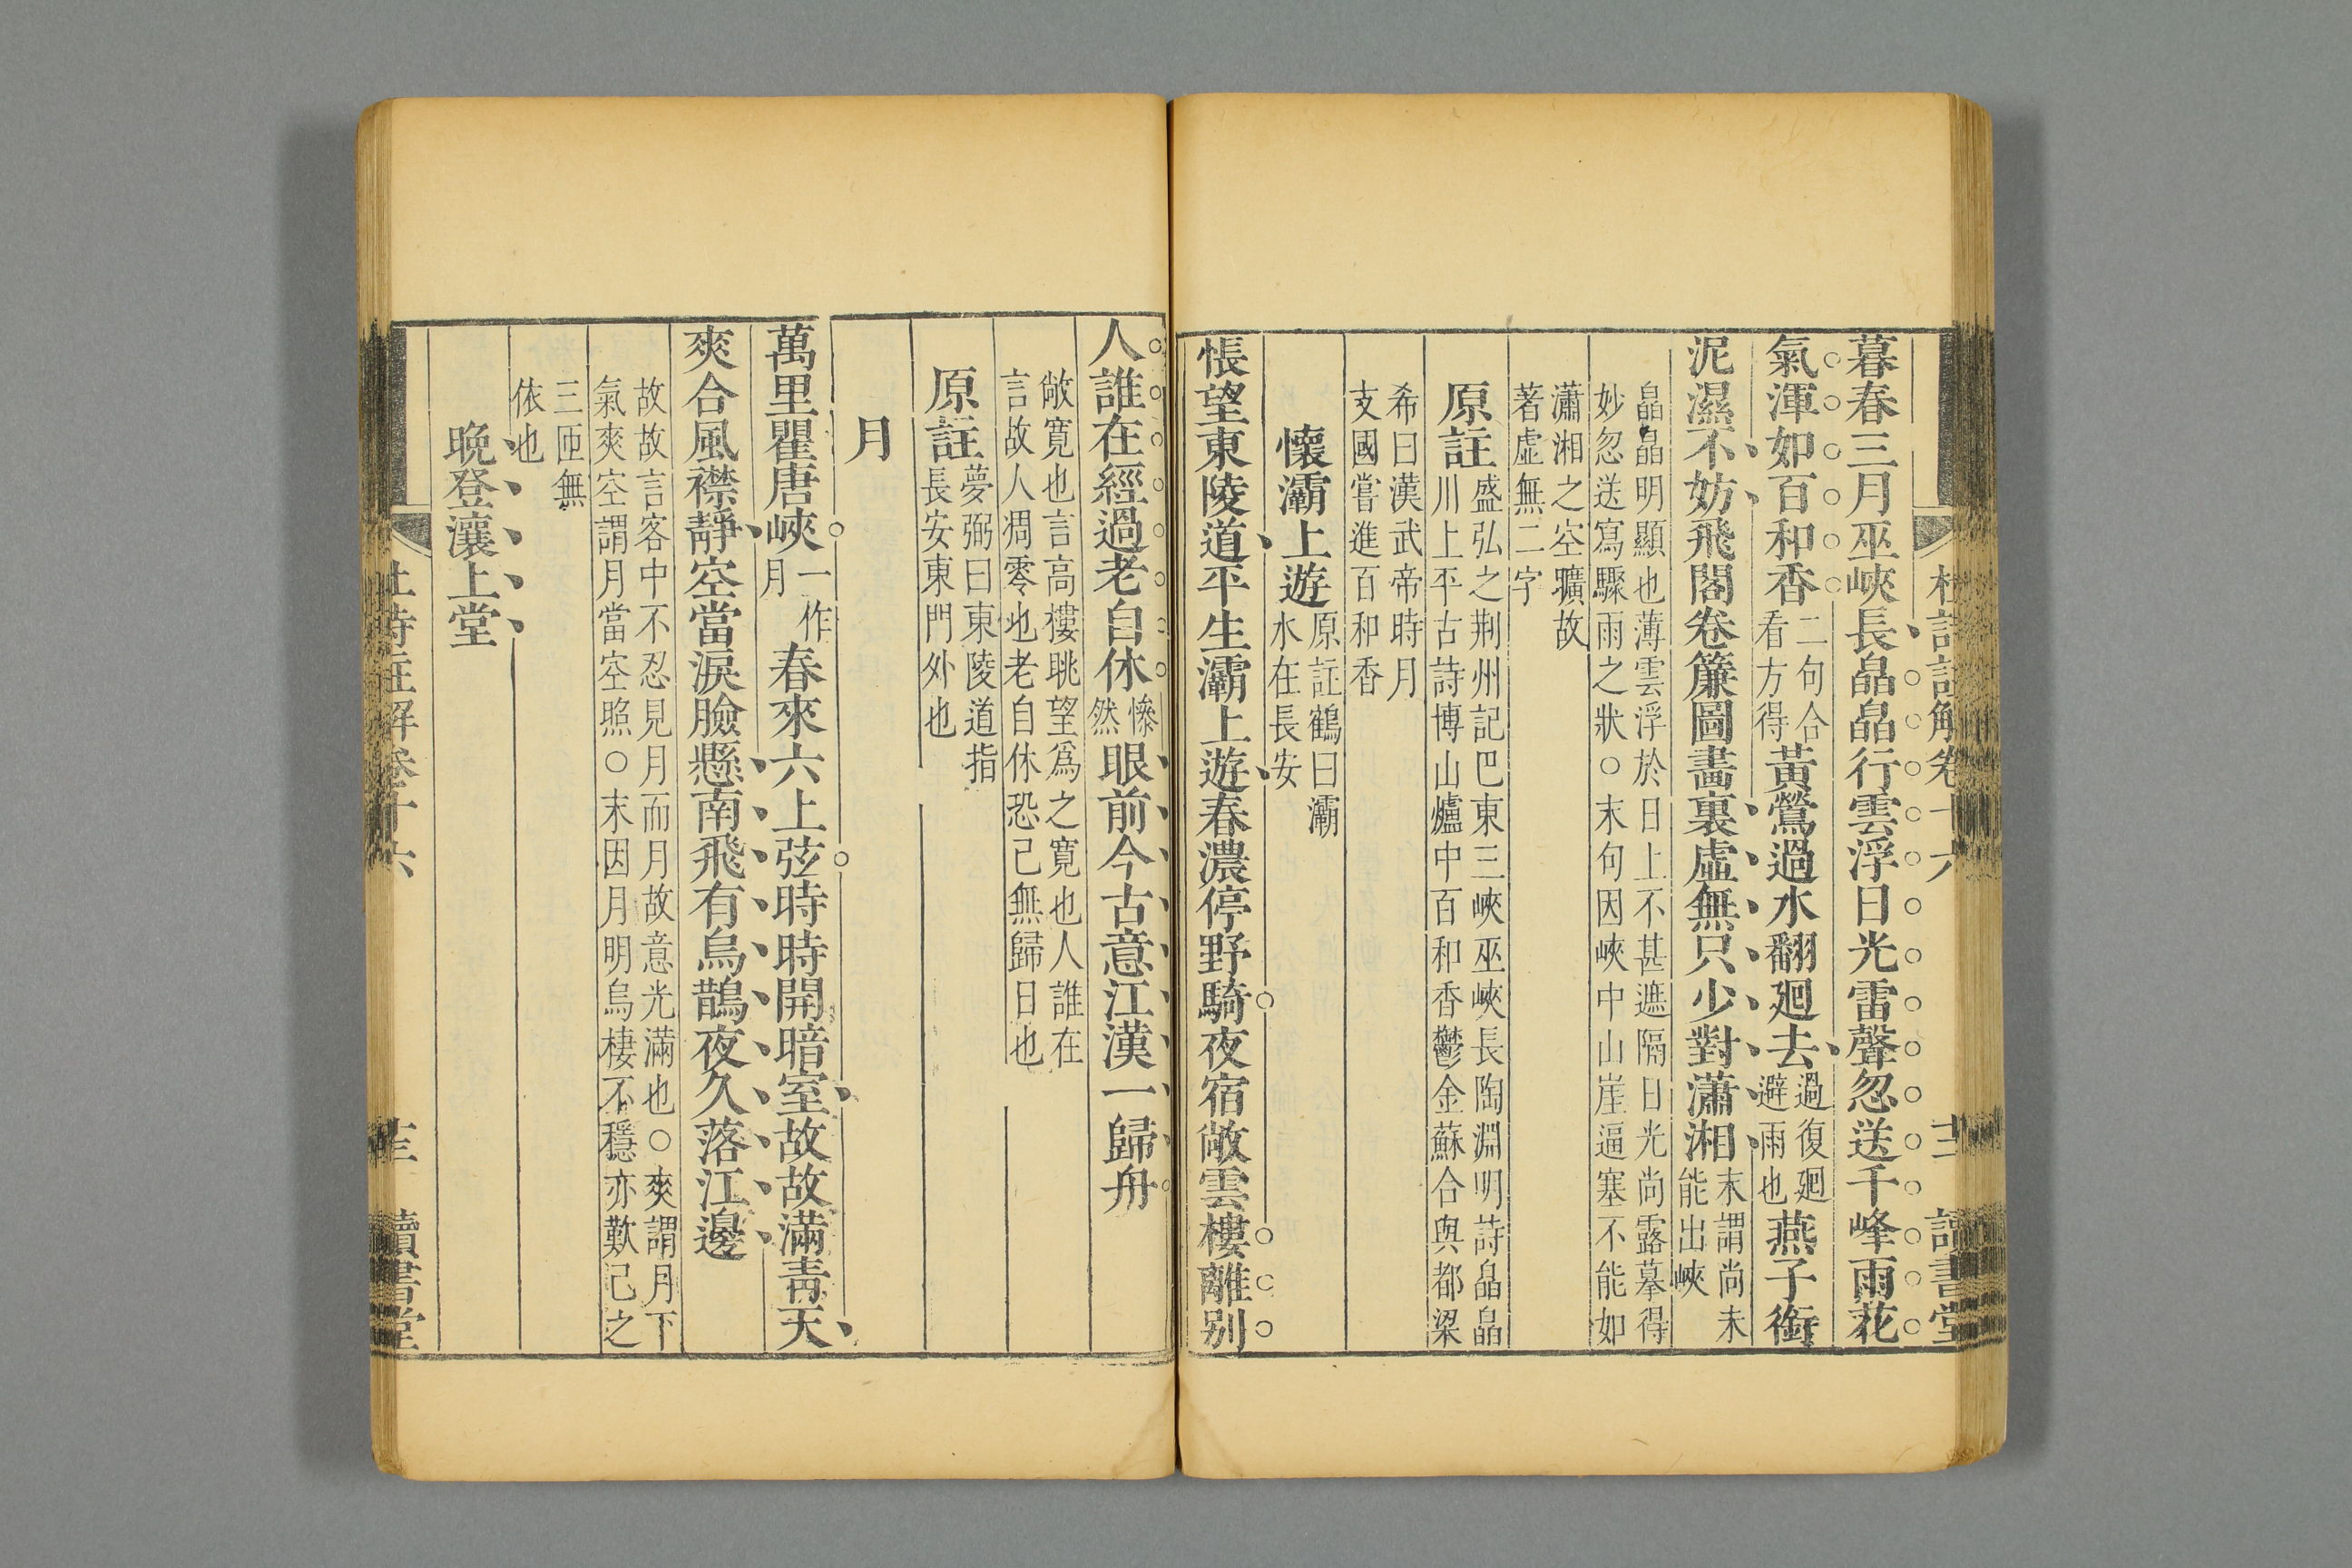 杜詩註解卷十六 十二 讀書堂
暮春三月巫峽長皛皛行雲浮日光雷聲忽送千峰雨花
氣渾如百和香二句合看方得黃鶯過水翻廻去過復廻避雨也燕子銜
泥濕不妨飛閣卷簾圖畫裏虛無只少對瀟湘末謂尚未能出峽
皛皛明顯也薄雲浮於日上不甚遮隔日光尚露摹得
妙忽送寫驟雨之狀○末句因峽中山崖逼塞不能如
瀟湘之空曠故
著虛無二字
原註盛弘之荆州記巴東三峽巫峽長陶淵明詩皛皛
川上平古詩博山爐中百和香鬱金蘇合與都梁
希曰漢武帝時月
支國嘗進百和香
懷灞上遊原註鶴曰灞水在長安
悵望東陵道平生灞上遊春濃停野騎夜宿敞雲樓離別
人誰在經過老自休慘然眼前今古意江漢一歸舟
敞寬也言高樓眺望爲之寬也人誰在
言故人凋零也老自休恐已無歸日也
原註夢弼曰東陵道指長安東門外也
月
萬里瞿唐峽一作月春來六上弦時時開暗室故故滿青天
爽合風襟靜空當淚臉懸南飛有烏鵲夜久落江邊
故故言客中不忍見月而月故意光滿也○爽謂月下
氣爽空謂月當空照○末因月明烏棲不穩亦歎己之
三匝無
依也
晚登瀼上堂
杜詩註解卷十六 讀書堂